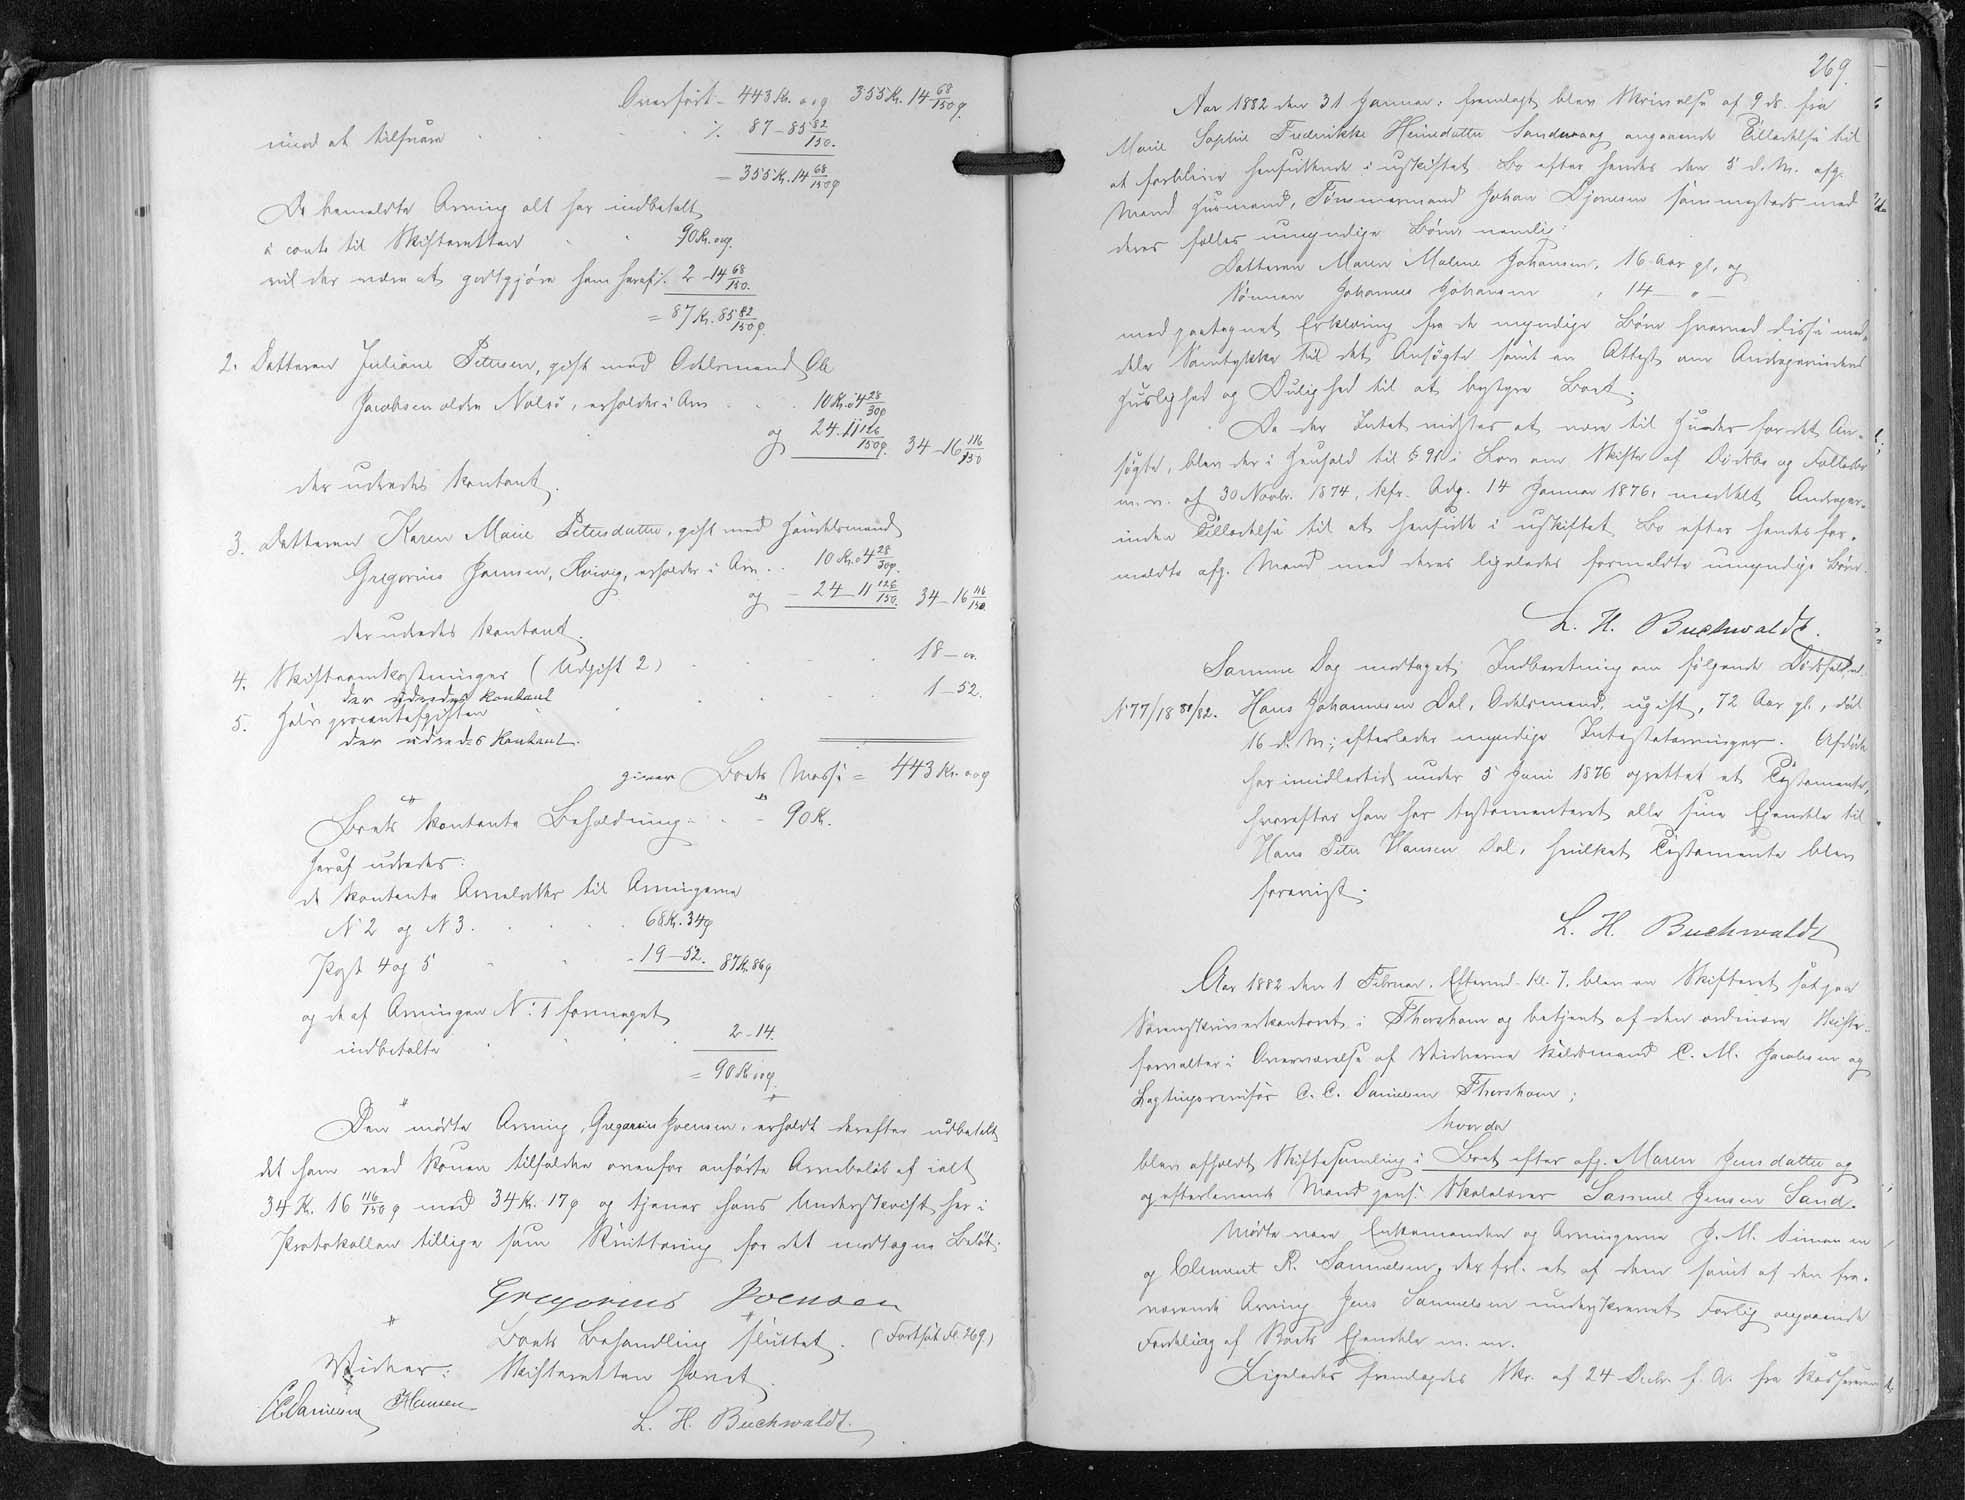 Overført - 443 Kr. oog 355 Kr. 14 68/150 ø.
med at tilsvare ./. 87-85 82/150.
= 355 Kr. 14 68/150 ø
Da bemeldte Arving alt har indbetalt
à conto til Skifteretten 90 Kr. oø.
vil der være at godtgjøre ham heraf ./. 2-14 68/150.
= 87 Kr. 85 82/150 ø.
2. Datteren Juliane Petersen, gift med Odelsmand Ole
Jacobsen ældre Nolsø, erholder i Arv 10 Kr. 04 28/30 ø
og 24. 11 126/150 ø. 34-16 116/150
der udredes kontant.
3. Datteren Karen Marie Petersdatter, gift med Handelsmand
Gregorius Joensen, Kvivig, erholder i Arv 10 Kr. 04 28/30 ø.
og - 24-11 126/150. 34-16 116/150.
der udredes kontant.
4. Skifteomkostninger (Udgift 2) 18-oo.
der udredes kontant
5. Halvprocentafgiften 1-52.
der udredes kontant.
giver Boets Masse = 443 Kr. oog
Boets kontante Beholdning 90 K.
Heraf udredes:
de kontante Arvelodder til Arvingerne
N 2 og N 3. 68 Kr. 34 ø
Post 4 og 5 - 19-52. 87 Kr. 86 ø
og de af Arvingen N: 1 formeget
indbetalte 2-14.
= 90 Kr. oø.
Den mødte Arving, Gregorius Joensen, erholdt derefter udbetalt
det ham ved Konen tilfaldne ovenfor anførte Arvebeløb af ialt
34 K. 16 116/150 ø med 34 Kr. 17 ø og tjener hans Underskrift her i
Protokollen tillige som Kvittering for det modtagne Beløb.
Gregorius Joensen
Boets Behandling sluttet. (Fortsat Fl. 269.)
Vidner: Skifteretten hævet.
CC Danielsen Hansen
L. H. Buchwaldt.
269.
Aar 1882 den 31 Januar: fremlagt blev Skrivelse af 9 ds. fra
Marie Sophie Fredrikke Heinedatter Sandevaag angaaende Tilladelse til
at forblive hensiddende i uskiftet Bo efter hendes den 5 d. M. afg.
Mand Husmand, Tømmermand Johan Djonesen sammesteds med
deres fælles umyndige Børn, nemlig:
Datteren Maren Malene Johansen, 16 Aar gl., og
Sønnen Johannes Johansen, 14 - " -
med paategnet Erklæring fra de myndige Børn hvorved disse med-
dele Samtykke til det Ansøgte samt en Attest om Andragerindens
Huslighed og Dulighed til at bestyre Boet.
Da der Intet vidstes at være til Hinder for det An-
søgte, blev der i Henhold til § 98 i Lov om Skifte af Dødsbo og Fællesbo
m. v. af 30 Novbr. 1874, kfr. Adg. 14 Januar 1876, meddelt Andrager-
inden Tilladelse til at hensidde i uskiftet Bo efter hendes for-
meldte afg. Mand med deres ligeledes formeldte umyndige Børn.
L. H. Buchwaldt.
Samme Dag modtaget Indberetning om følgende Dødsfald,
N 77/18 81/82. Hans Johannesen Dal, Odelsmand, ugift, 72 Aar gl., død
16 d. M.; efterlader myndige Intestatarvinger. Afdøde
har imidlertid under 5 Juni 1876 oprettet et Testamente,
hvorefter han har testamenteret alle sine Ejendele til
Hans Peter Hansen Dal, hvilket Testamente blev
forevist.
L. H. Buchwaldt
Aar 1882 den 1 Februar. Eftermd. Kl. 7. blev en Skifteret sat paa
Sørenskriverkontoret i Thorshavn og betjent af den ordinære Skifte-
forvalter i Overværelse af Vidnerne C. M. Jacobsen og
Lagtingsrevisor C. C. Danielsen Thorshavn;
hvorda
blev afholdt Skiftesamling i Boet efter afg. Maren Jensdatter og
og efterlevende Mand pens. Skolelærer Samuel Jensen Sand.
Mødte vare Enkemanden og Arvingerne J. M. Simonsen
og Clement R. Samuelsen, der frl. et af dem samt af den fra-
værende Arving Jens Samuelsen underskrevet Forlig angaaende
Fordeling af Boets Ejendele m. m.
Ligeledes fremlagdes Skr. af 24 Decbr. f. A. fra